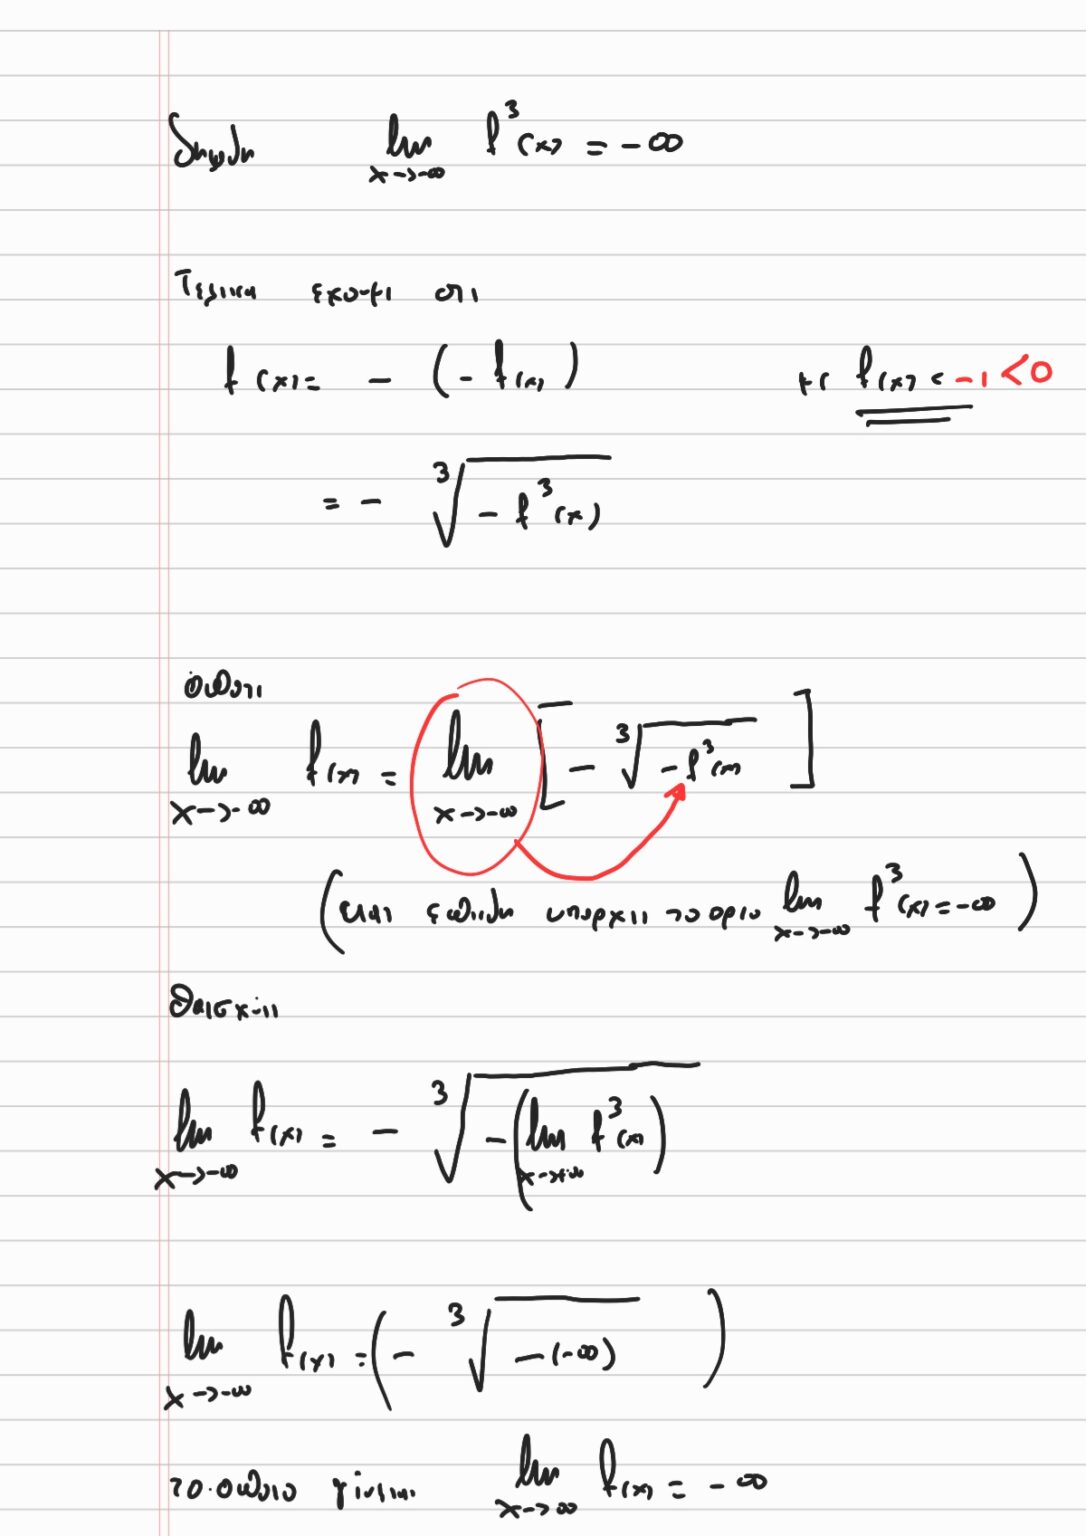 δηλαδή lim x→-∞ f³(x) = -∞
Τελικα εχουμε οτι
f(x) = - (-f(x)) με f(x) < -1 < 0
= - ∛(-f³(x))
οποτε
lim x→-∞ f(x) = lim x→-∞ [ - ∛(-f³(x)) ]
(και επειδη υπαρχει το οριο lim x→-∞ f³(x) = -∞ )
θα ισχυει
lim x→-∞ f(x) = - ∛(-(lim x→-∞ f³(x)))
lim x→-∞ f(x) = ( - ∛(-(-∞)) )
το οποιο γίνεται lim x→∞ f(x) = -∞